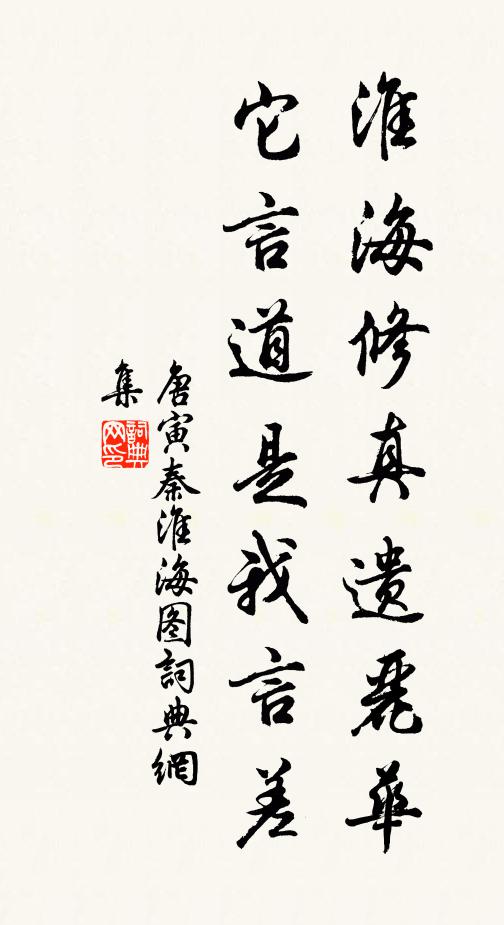 淮海修真遗麗華
它言道是我言差
唐寅秦淮海图詞典網
集
詞典网印